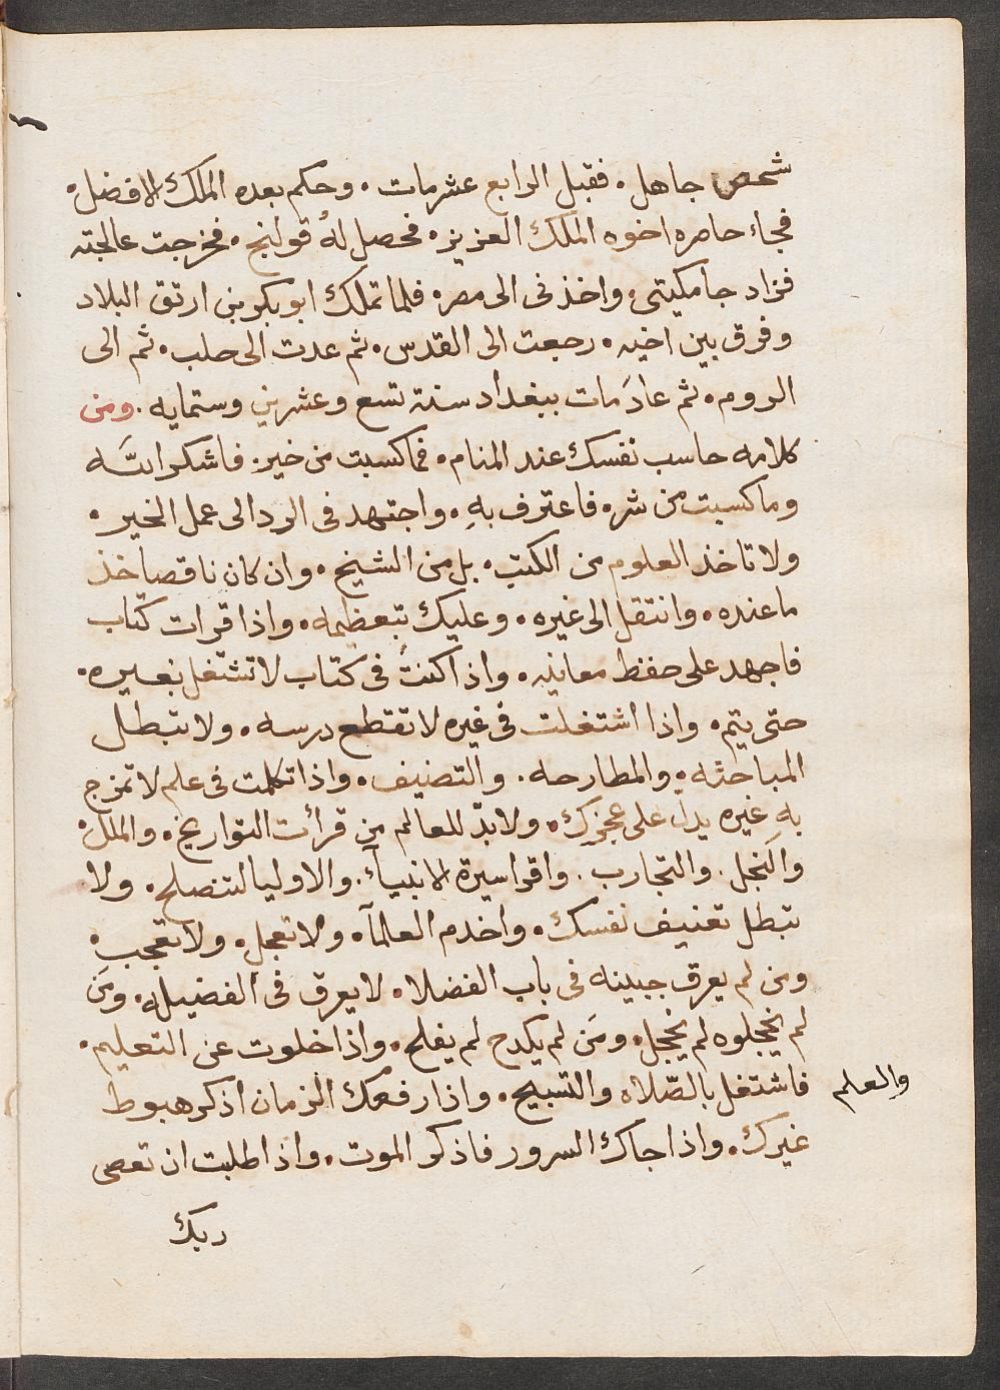 شخص جاهل. فقبل الرابع عشر مات. وحكم بعده الملك الافضل.
فجاء حاصره اخوه الملك العزيز. فحصل لهُ قولنج. فخرجت عالجته
فزاد جامكيتي. واخذني الى مصر. فلما تملك ابو بكر بن ارتق البلاد
وفرق بين اخيه. رجعت الى القدس. ثم عدت الى حلب. ثم الى
الروم. ثم عادَ مات ببغداد سنة تسع وعشرين وستمايه. ومن
كلامه حاسب نفسك عند المنام. فما كسبت من خير. فاشكر اللّه
وما كسبت من شر. فاعترف بهِ. واجتهد في الرد الى عمل الخير.
ولا تاخذ العلوم من الكتب. بل من الشيخ. وان كان ناقصا خذ
ما عنده. وانتقل الى غيره. وعليك بتعظيمه. واذا قرات كتاب
فاجهد على حفظ معانيه. واذا كنتُ في كتاب لا تشتغل بغيره.
حتى يتم. واذا اشتغلت في غيره لا تقتطع درسه. ولا تبطل
المباحثه. والمطارحه. والتصنيف. واذا تكلمت في علم لا تمزج
بهِ غيره يدل على عجزك. ولا بدّ للعالم من قرأت التواريخ. والملل.
والنحل. والتجارب. واقرا سيرة الانبيآء. والاوليا لتنصلح. ولا
تبطل تعنيف نفسك. واخدم العلمآء. ولا تعجل. ولا تعجب.
ومن لم يعرق جبينه في باب الفضلاء. لا يعرق في الفضيله. ومَن
لم يخجلوه لم يخجل. ومَن لم يكدح لم يفلح. واذا خلوت عن التعليم.
والعلم
فاشتغل بالصّلاه والتسبيح. واذا رفعك الزمان اذكر هبوط
غيرك. واذا جاك السرور فاذكر الموت. واذا طلبت ان تعصى
ربك